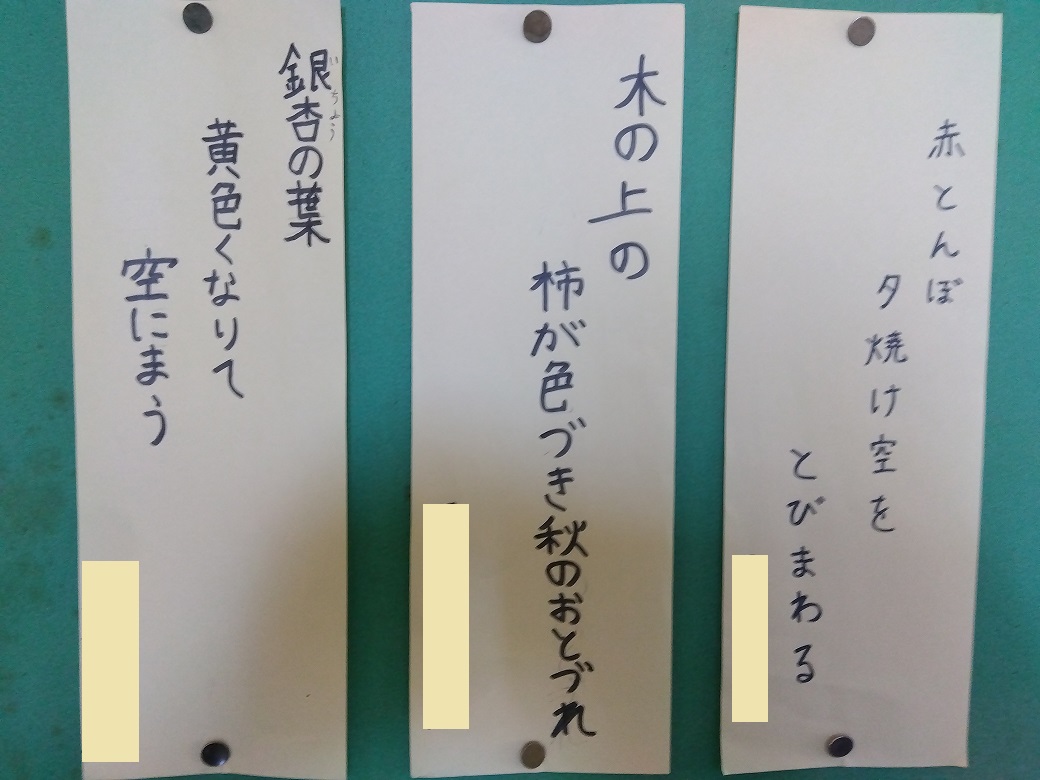 赤とんぼ
夕焼け空を
とびまわる
木の上の
柿が色づき秋のおとづれ
銀杏の葉
いちょう
黄色くなりて
空にまう